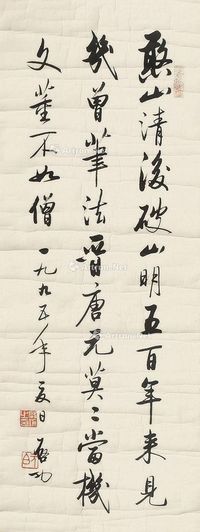 憨山清后破山明五百年来見
幾曾筆法晋唐元莫〻當機
文董不如僧 一九九五年夏日 启功